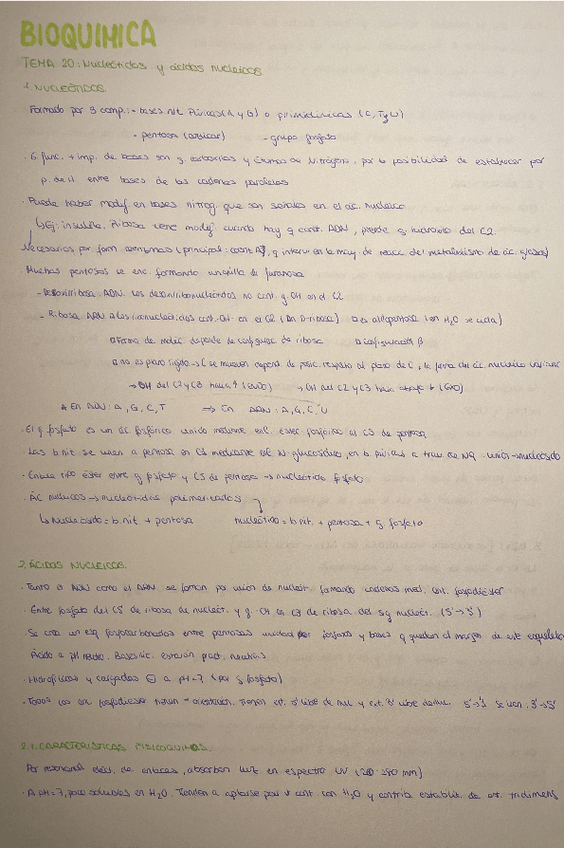 BIOQUIMICA
TEMA 20: Nucleótidos y ácidos nucleicos
1. NUCLEÓTIDOS
Formado por 3 comp.: - bases nit. Púricas (A y G) o pirimidínicas (C, T y U)
- pentosa (azúcar) - grupo fosfato
· G. func. + imp. de bases son g. carbonilos y átomos de Nitrógeno, por la posibilidad de establecer por
p. de H entre bases de las cadenas paralelas
· Puede haber modif. en bases nitrog. que son señales en el ác. nucleico
↳ Ej: Ribosa viene modif. cuando hay q const. ADN, pierde g. hidroxilo del C2.
Necesarios por form. (principal: ATP), q interv. en la may. de reacc. del metabolismo de ác.
Muchas pentosas se enc. formando un anillo de furanosa
- Desoxirribosa: ADN. Los desoxirribonucleótidos no cont. g. OH en el C2
- Ribosa: ARN. Los ribonucleótidos cont. OH en el C2 (en D-ribosa) es aldopentosa (en H₂O se cicla)
Forma de molec. depende de configurac. de ribosa configuración β
no es plano rígido → C se mueven depend. de posic. respecto al plano de C, la forma del ác. nucleico
→ OH del C2 y C3 hacia ↑ (ENDO) → OH del C2 y C3 hacia abajo ↓ (EXO)
* En ADN: A, G, C, T → En ARN: A, G, C, U
· El g. fosfato es un ác. fosfórico unido mediante enl. éster fosfórico al C5 de pentosa
· Las b. nit. se unen a pentosa en C1 mediante enl. N-glucosídico, en b. púricas a trav. de N9
· Enlace tipo éster entre g. fosfato y C5 de pentosa → nucleótido fosfato
· ÁC. nucleicos → nucleótidos polimerizados
↳ Nucleósido = b. nit. + pentosa nucleótido = b. nit. + pentosa + g. fosfato
2. ÁCIDOS NUCLEICOS.
· Tanto el ADN como el ARN se forman por unión de nucleót. formando cadenas med. enl. fosfodiéster
· Entre fosfato del C5' de ribosa de nucleót. y g. -OH en C3' de ribosa del sig. nucleót. (5'→3')
· Se crea un esq. entre pentosas unidas por fosfatos y bases q quedan al margen de este esqueleto
Ácido a pH neutro. Bases nit. estarán pract. neutras
· Hidrofílicos y cargados ⊖ a pH=7 (por g. fosfato)
· Todos los enl. fosfodiéster tienen = orientación. Tienen ext. 5' libre de nucl. y ext. 3' libre 5'→3'
2.1. CARACTERÍSTICAS FISICOQUÍMICAS.
Por resonancia elect. de enlaces, absorben luz en espectro UV
· A pH=7, poco solubles en H₂O. Tienden a apilarse para ↓ cont. con H₂O y contrib. establiz. de est. tridimens